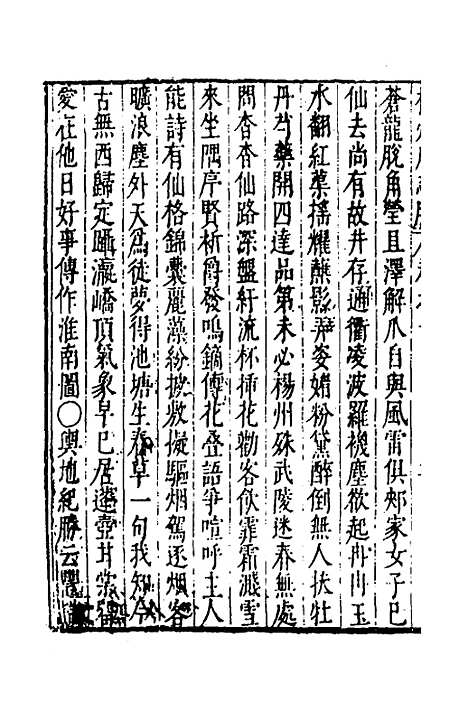 蒼龍脫角瑩且澤解爪自與風雷俱郟家女子已
仙去尚有故井存通衢凌波羅襪塵欲起冉冉玉
水翻紅藥搖耀蘸影弄姿媚粉黛醉倒無人扶牡
丹芍藥開四達品第未必楊州殊武陵迷春無處
問杳杳仙路深盤紆流杯揷花勸客飲霏霜濺雪
來坐隅序賢析爵發鳴鏑傳花叠語爭喧呼主人
能詩有仙格錦囊麗藻紛披敷擬驅烟駕逐烟客
曠浪塵外天爲徒夢得池塘生春草一句我知今
古無西歸定躡瀛嶠頂氣象早已居蓬壺甘棠
愛在他日好事傳作淮南圖〇輿地紀勝云